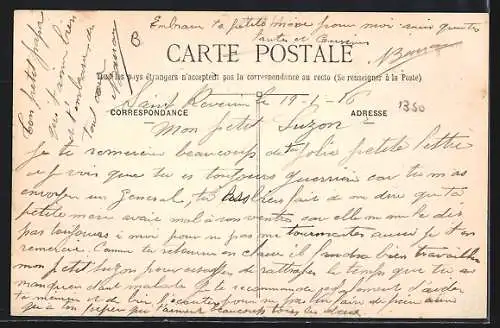 Embrasse ta petite mère pour moi ainsi que tes
tantes et Cousines
CARTE POSTALE
Tous les pays étrangers n'acceptent pas la correspondance au recto (Se renseigner à la Poste)
Saint Severin le 19-1-16
1350
CORRESPONDANCE
ADRESSE
Mon petit Suzon
Je te remercie beaucoup de ta jolie petite lettre
je vois que tu es toujours car tu m'as
un General, tu as bien fait de me dire que ta
petite mère avait mal à son ventre car elle ne me le dit
pas toujours à moi pour ne pas me tourmenter aussi je t'en
remercie. Comme tu retournes en classe il faudra bien travailler
mon petit pour de rattraper le temps que tu as
manqué malade. Je te recommande d'aider
ta mémère et de bien l'écouter pour ne pas lui faire de peine ainsi
qu'à ton pépère qui t'aiment beaucoup tous les deux
Ton petit papa
qui t'aime bien
et t'embrasse de
tout cœur